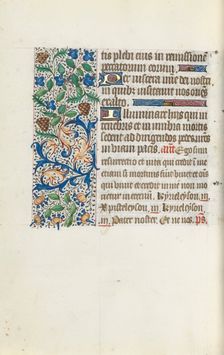 tis plebi eius in remissionē
peccatorum eorum.
Per viscera mie dei nostri
in quib; visitauit nos oriens
ex alto.
Illuminare hiis qui in
tenebris et in umbra mortis
sedent ad dirigendos pedes nr̄os
in viam pacis. ant. Ego sum
resurrectio et vita qui credit in me
etiam si mortuus fuerit viuet et ois
qui viuit et credit in me non morie
tur in eternū. Kyrieleyson. iii.
Xpisteleyson. iii. Kyrieleyson.
iii. Pater noster. Et ne nos. ps